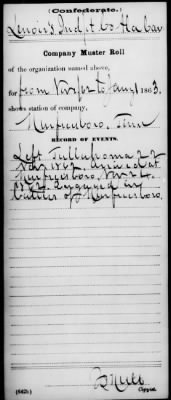 (Confederate.)
Lenoir's Ind't Co. Ala Cav
Company Muster Roll
of the organization named above,
for from Nov for to Jany 1 1863.
shows station of company,
Murfreesboro, Tenn
RECORD OF EVENTS.
Left Tullahoma 22
Nov 1862. Arrived at
Murfreesboro Nov. 24.
1862. Engaged in
battles of Murfreesboro.
(642b)
Copyist.